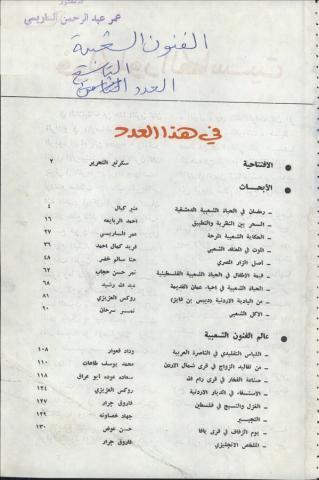 الدكتور
عمر عبد الرحمن الساريسي
الفنون الشعبية
العدد التاسع
في هذا العدد
الافتتاحية سكرتير التحرير ٢
الأبحاث
– رمضان في الحياة الشعبية الدمشقية منير كيال ٤
– السحر بين النظرية والتطبيق احمد الربايعه ١٦
– الحكاية الشعبية المرحة عمر الساريسي ٢٧
– الموت في المعتقد الشعبي فريد كمال احمد ٣٦
– اصل الزار المصري هنا سالم خضر ٤٨
– قبعة الاطفال في الحياة الشعبية الفلسطينية نمر حسن حجاب ٦٢
– الحياة الشعبية في احياء عمان القديمة عبد الله رشيد ٦٨
– من البادية الاردنية (دبيس بن فايز) روكس العزيزي ٨١
– الاكل الشعبي نمر سرحان ٩٠
عالم الفنون الشعبية
– اللباس التقليدي في الناصرة العربية وداد قعوار ١٠٨
– من تقاليد الزواج في قرى شمال الاردن محمد يوسف طاهات ١١٠
– صناعة الفخار في قرى رام الله سعاده عوده ابو عراق ١١٨
– الاستسقاء في الديار الاردنية روكس العزيزي ١٢٤
– الغزل والنسيج في فلسطين فاروق جرار ١٢٧
– التجبير جهاد خصاونه ١٢٩
– يوم الزفاف في قرى يافا حسن عوض ١٣٠
– الملخص الانجليزي فاروق جرار